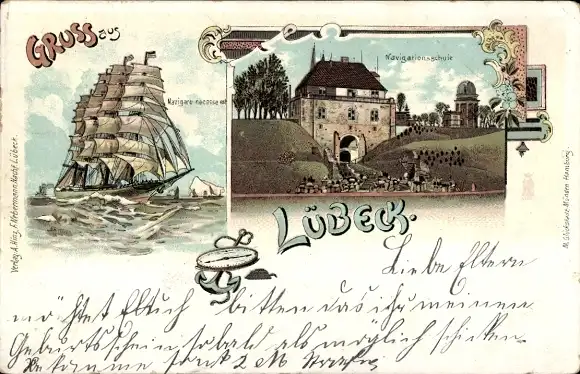 GRUSS aus
Navigare necesse est
Navigationsschule
LÜBECK.
Verlag A. Hinz, F. Webermann Nachf. Lübeck.
M. Glückstadt & Münden Hamburg.
Liebe Eltern
möchtet Euch bitten das ihr meinen
Geburtsschein so bald als möglich schicken.
Bekomme sonst 2 M Strafe.